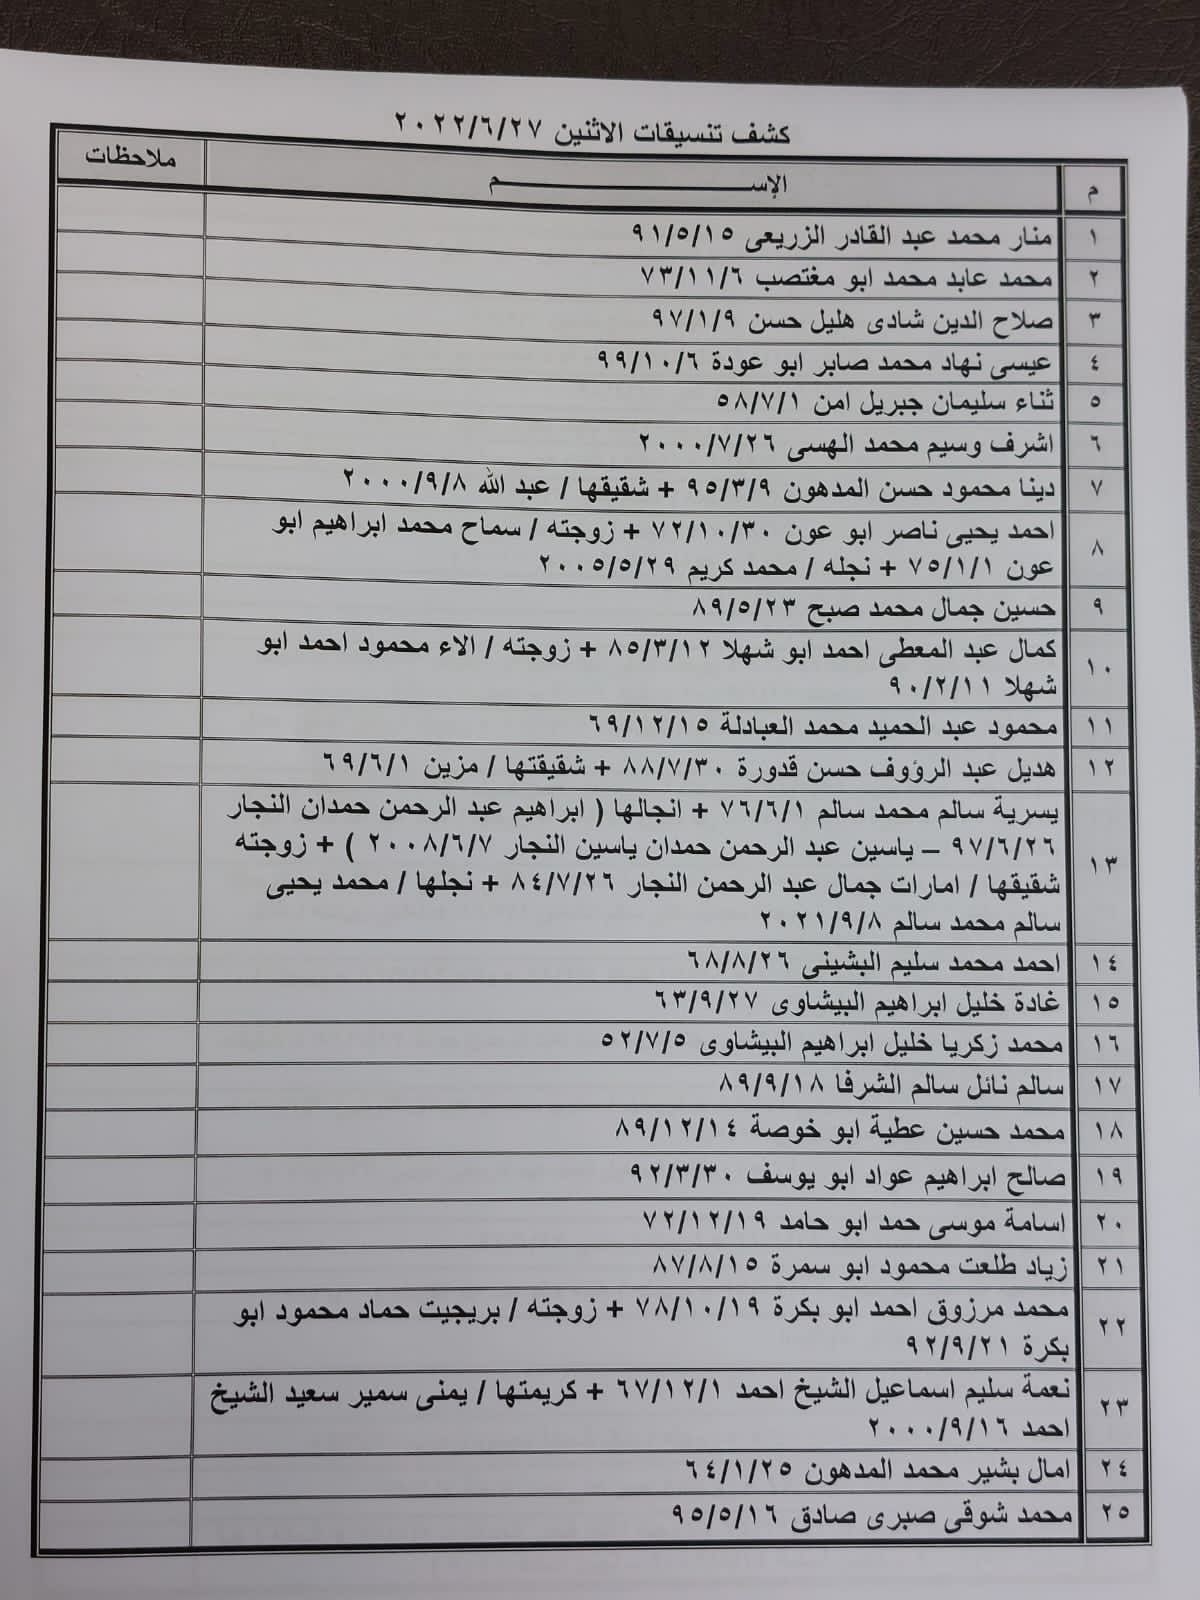 كشف تنسيقات الاثنين ٢٠٢٢/٦/٢٧
م الإســـم ملاحظات
١ منار محمد عبد القادر الزريعى ٩١/٥/١٥
٢ محمد عابد محمد ابو مغتصب ٧٣/١١/٦
٣ صلاح الدين شادى هليل حسن ٩٧/١/٩
٤ عيسى نهاد محمد صابر ابو عودة ٩٩/١٠/٦
٥ ثناء سليمان جبريل امن ٥٨/٧/١
٦ اشرف وسيم محمد الهسى ٢٠٠٠/٧/٢٦
٧ دينا محمود حسن المدهون ٩٥/٣/٩ + شقيقها / عبد الله ٢٠٠٠/٩/٨
٨ احمد يحيى ناصر ابو عون ٧٢/١٠/٣٠ + زوجته / سماح محمد ابراهيم ابو
عون ٧٥/١/١ + نجله / محمد كريم ٢٠٠٥/٥/٢٩
٩ حسين جمال محمد صبح ٨٩/٥/٢٣
١٠ كمال عبد المعطى احمد ابو شهلا ٨٥/٣/١٢ + زوجته / الاء محمود احمد ابو
شهلا ٩٠/٢/١١
١١ محمود عبد الحميد محمد العبادلة ٦٩/١٢/١٥
١٢ هديل عبد الرؤوف حسن قدورة ٨٨/٧/٣٠ + شقيقتها / مزين ٦٩/٦/١
١٣ يسرية سالم محمد سالم ٧٦/٦/١ + انجالها ( ابراهيم عبد الرحمن حمدان النجار
٩٧/٦/٢٦ – ياسين عبد الرحمن حمدان ياسين النجار ٢٠٠٨/٦/٧ ) + زوجته
شقيقها / امارات جمال عبد الرحمن النجار ٨٤/٧/٢٦ + نجلها / محمد يحيى
سالم محمد سالم ٢٠٢١/٩/٨
١٤ احمد محمد سليم البشينى ٦٨/٨/٢٦
١٥ غادة خليل ابراهيم البيشاوى ٦٣/٩/٢٧
١٦ محمد زكريا خليل ابراهيم البيشاوى ٥٢/٧/٥
١٧ سالم نائل سالم الشرفا ٨٩/٩/١٨
١٨ محمد حسين عطية ابو خوصة ٨٩/١٢/١٤
١٩ صالح ابراهيم عواد ابو يوسف ٩٢/٣/٣٠
٢٠ اسامة موسى حمد ابو حامد ٧٢/١٢/١٩
٢١ زياد طلعت محمود ابو سمرة ٨٧/٨/١٥
٢٢ محمد مرزوق احمد ابو بكرة ٧٨/١٠/١٩ + زوجته / بريجيت حماد محمود ابو
بكرة ٩٢/٩/٢١
٢٣ نعمة سليم اسماعيل الشيخ احمد ٦٧/١٢/١ + كريمتها / يمنى سمير سعيد الشيخ
احمد ٢٠٠٠/٩/١٦
٢٤ امال بشير محمد المدهون ٦٤/١/٢٥
٢٥ محمد شوقى صبرى صادق ٩٥/٥/١٦